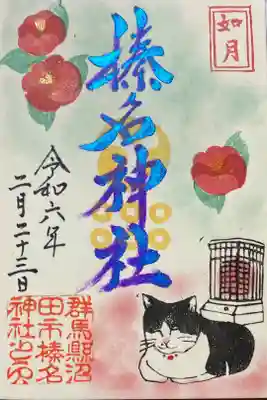 如月
榛名神社
令和六年
二月二十三日
群馬縣沼
田市榛名
神社之印